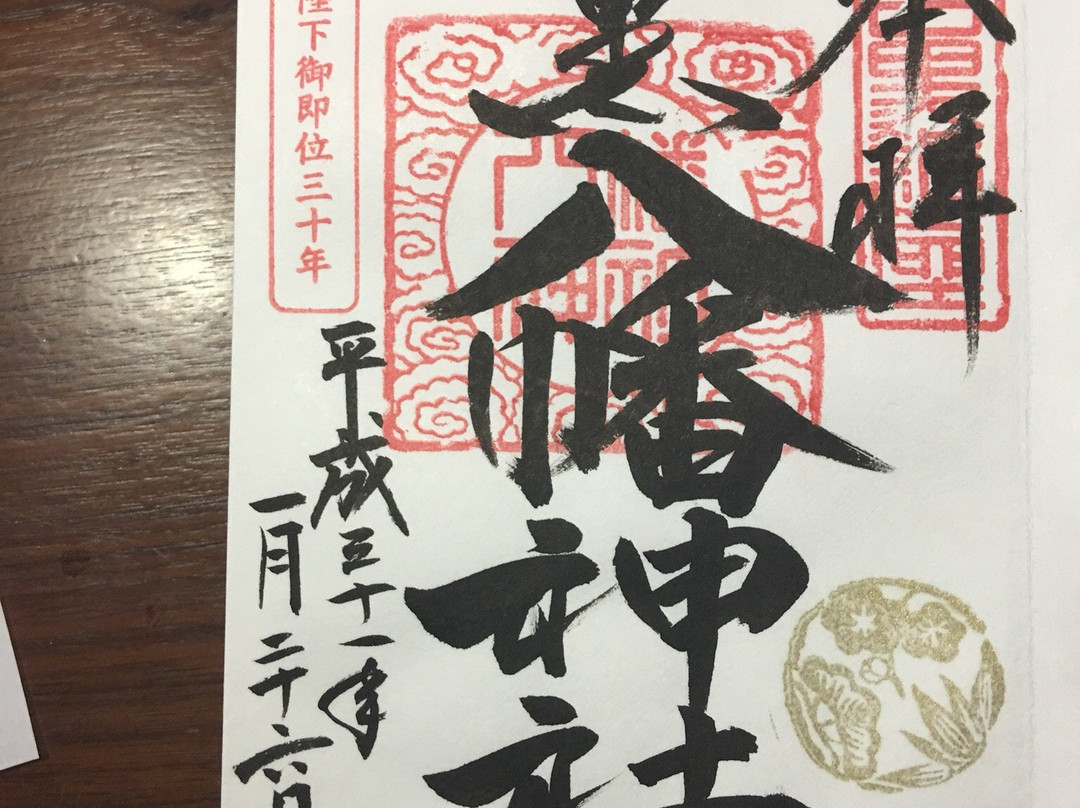 奉拝
黒八幡神社
陛下御即位三十年
平成三十一年
一月二十六日